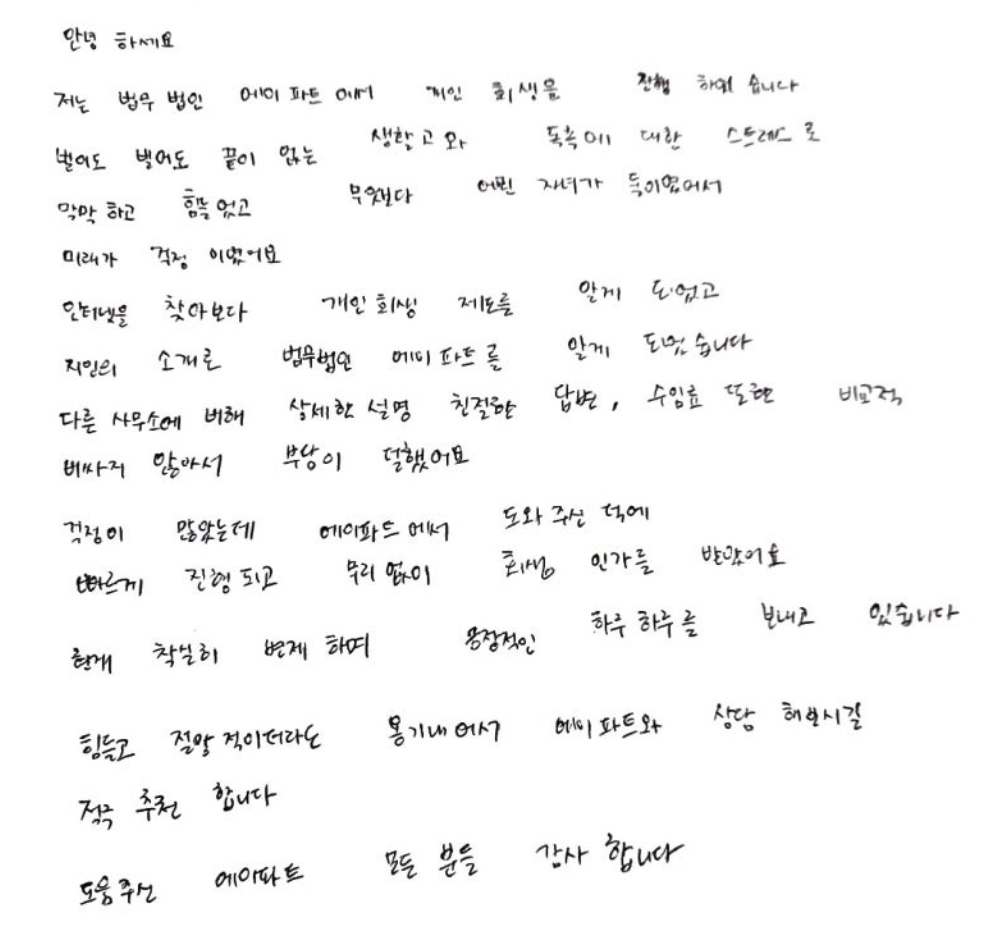 안녕 하세요
저는 법무 법인 에이 파트 에서 개인 회생을 진행 하였 습니다
벌어도 벌어도 끝이 없는 생활고 와 독촉에 대한 스트레스 로
막막 하고 힘들 었고 무엇보다 어린 자녀가 둘이였어서
미래가 걱정 이였어요
인터넷을 찾아보다 개인 회생 제도를 알게 되었고
지인의 소개로 법무법인 에이 파트 를 알게 되었 습니다
다른 사무소에 비해 상세한 설명 친절한 답변, 수임료 또한 비교적
비싸지 않아서 부담이 덜했어요
걱정이 많았는데 에이파트 에서 도와 주신 덕에
빠르게 진행 되고 무리 없이 회생 인가를 받았어요
현재 착실히 변제 하며 긍정적인 하루 하루 를 보내고 있습니다
힘들고 절망 적이더라도 용기내 어서 에이 파트와 상담 해보시길
적극 추천 합니다
도움 주신 에이파트 모든 분들 감사 합니다